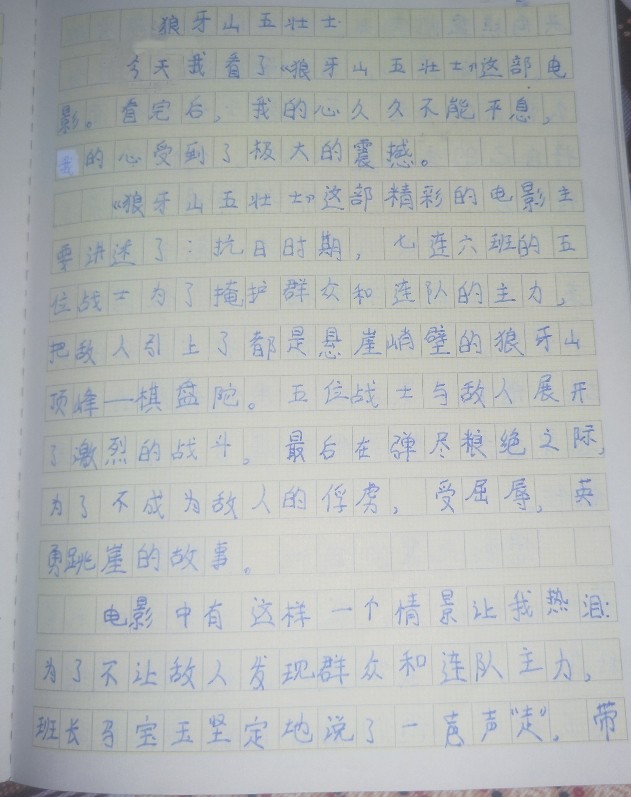 狼牙山五壮士
今天我看了《狼牙山五壮士》这部电
影。看完后，我的心久久不能平息，
我的心受到了极大的震撼。
《狼牙山五壮士》这部精彩的电影主
要讲述了：抗日时期，七连六班的五
位战士为了掩护群众和连队的主力，
把敌人引上了都是悬崖峭壁的狼牙山
顶峰——棋盘陀。五位战士与敌人展开
了激烈的战斗。最后在弹尽粮绝之际，
为了不成为敌人的俘虏，受屈辱，英
勇跳崖的故事。
电影中有这样一个情景让我热泪：
为了不让敌人发现群众和连队主力，
班长马宝玉坚定地说了一声"走"。带